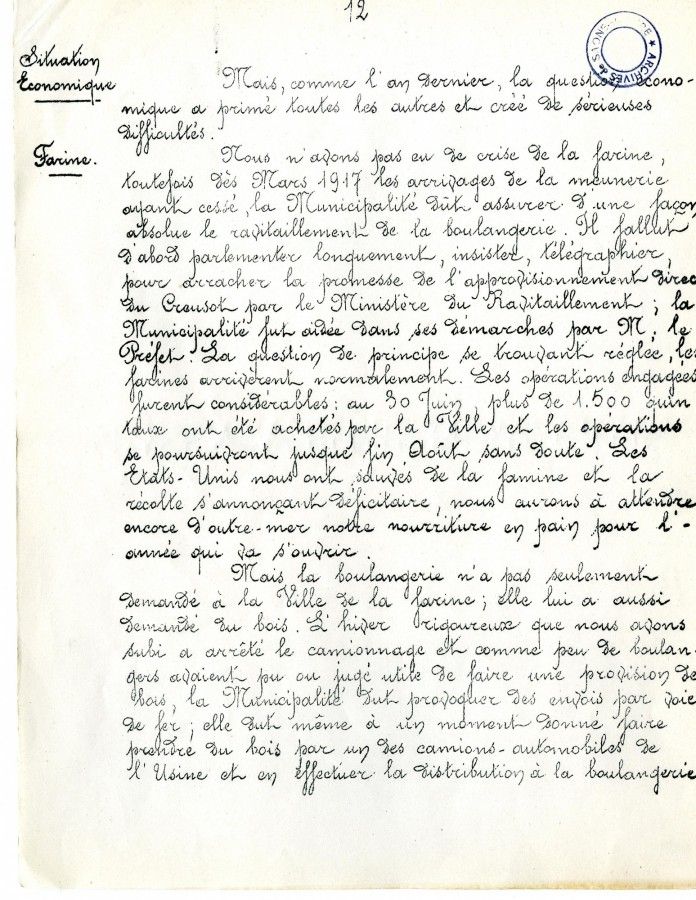 12
ARCHIVES de SAONE-
Situation
Economique
Mais, comme l'an dernier, la question écono-
mique a primé toutes les autres et créé de sérieuses
difficultés.
Farine.
Nous n'avons pas eu de crise de la farine,
toutefois dès Mars 1917 les arrivages de la meunerie
ayant cessé, la Municipalité dût assurer d'une façon
absolue le ravitaillement de la boulangerie. Il fallut
d'abord parlementer longuement, insister, télégraphier,
pour arracher la promesse de l'approvisionnement direc
du Creusot par le Ministère du Ravitaillement ; la
Municipalité fut aidée dans ses démarches par M. le
Préfet. La question de principe se trouvant réglée, les
farines arrivèrent normalement. Les opérations engagées
furent considérables : au 30 Juin, plus de 1.500 quin
taux ont été achetés par la Ville et les opérations
se poursuivront jusque fin Août sans doute. Les
Etats-Unis nous ont sauvés de la famine et la
récolte s'annonçant déficitaire, nous aurons à attendre
encore d'outre-mer notre nourriture en pain pour l'-
année qui va s'ouvrir.
Mais la boulangerie n'a pas seulement
demandé à la Ville de la farine ; elle lui a aussi
demandé du bois. L'hiver rigoureux que nous avons
subi a arrêté le camionnage et comme peu de boulan-
gers avaient pu ou jugé utile de faire une provision de
bois, la Municipalité dut provoquer des envois par voie
de fer ; elle dut même à un moment donné faire
prendre du bois par un des camions-automobiles de
l'Usine et en effectuer la distribution à la boulangerie